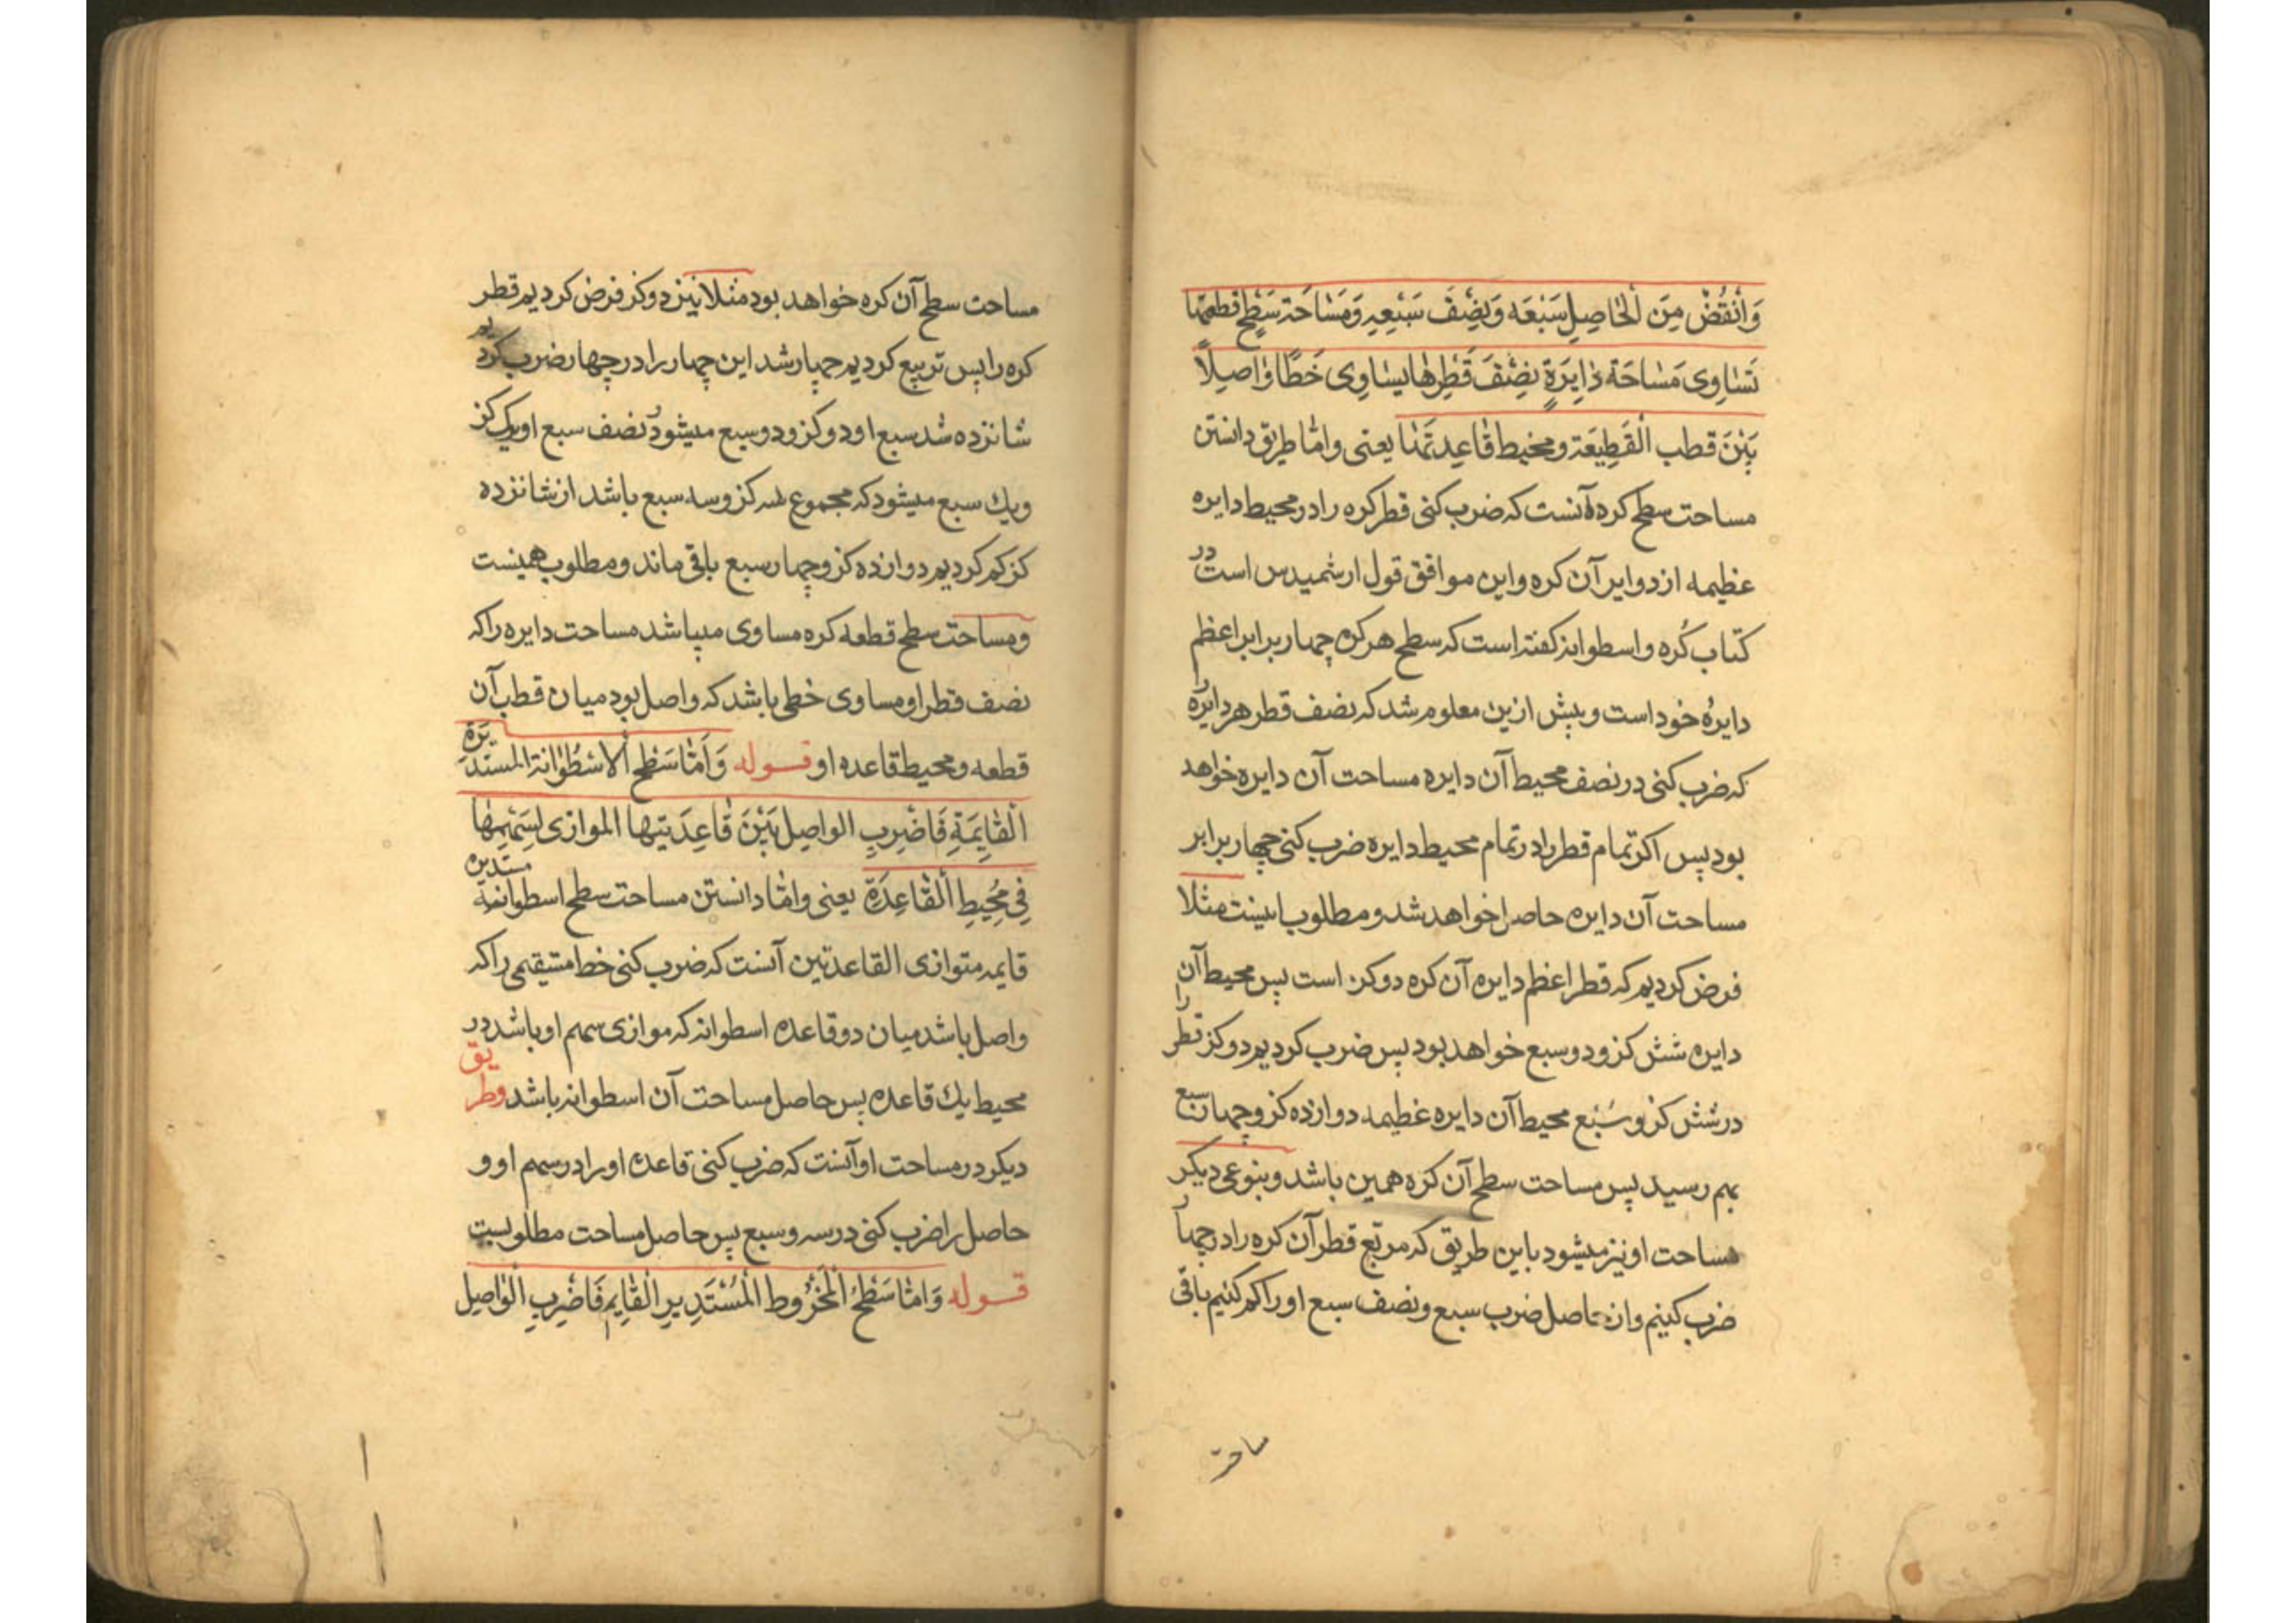 وَانْقُصْ مِنَ الْحَاصِلِ سَبْعَه وَنِصْفَ سَبْعِهِ وَمَسَاحَة سَطْحِ قطعتها
تَسَاوِى مَسَاحَة دٰايِرَةٍ نِصْفَ قَطْرِهٰا يسَاوِى خَطًّا وٰاصِلًا
بَيْنَ قطب الْقَطِيعَة ومحيط قٰاعِدَتهَا يعنى واما طريق دانستن
مساحت سطح كره آنست كه ضرب كنى قطر كره را در محيط دايره
عظيمه از دواير آن كره و اين موافق قول ارشميدس است در
كتاب كُره و اسطوانه كفته است كه سطح هر كره چهار برابر اعظم
دايرهٔ خود است و پيش ازين معلوم شد كه نصف قطر هر دايره را
كه ضرب كنى در نصف محيط آن دايره مساحت آن دايره خواهد
بود پس اكر تمام قطر را در تمام محيط دايره ضرب كنى چهار برابر
مساحت آن دايره حاصل خواهد شد و مطلوب اينست مثلا
فرض كرديم كه قطر اعظم دايره آن كره دو كز است پس محيط آن
دايره شش كز و دو سبع خواهد بود پس ضرب كرديم دو كز قطر را
در شش كز و سُبْع محيط آن دايره عظيمه دوازده كز و چهار سبع
بهم رسيد پس مساحت سطح آن كره همين باشد و بنوعى ديكر
مساحت او نيز ميشود باين طريق كه مربّع قطر آن كره را در چهار
ضرب كنيم و از حاصل ضرب سبع و نصف سبع او را كم كنيم باقى
ساحة
مساحت سطح آن كره خواهد بود مثلا نيز دو كز فرض كرديم قطر
كره را پس تربيع كرديم چهار شد اين چهار را در چهار ضرب كرديم
شانزده شد سبع او دو كز و دو سبع ميشود و نصف سبع او يك كز
ويك سبع ميشود كه مجموع سه كز و سه سبع باشد از شانزده
كز كم كرديم دوازده كز و چهار سبع باقى ماند و مطلوب همينست
ومساحت سطح قطعه كره مساوى ميباشد مساحت دايره را كه
نصف قطر او مساوى خطى باشد كه واصل بود ميان قطب آن
قطعه و محيط قاعده او قوله وَاَمّٰا سَطْح الاسْطُوٰانة المستديرَةِ
الْقٰايِمَةِ فَاضْرِبِ الواصِل بَيْنَ قَاعِدَتيها الموازى لِسَهْمِهٰا
فِى مُحِيطِ الْقٰاعِدَةِ يعنى وامّا دانستن مساحت سطح اسطوانهٔ مستديره
قايمه متوازى القاعدتين آنست كه ضرب كنى خط مستقيمى را كه
واصل باشد ميان دو قاعده اسطوانه كه موازى سهم او باشد در
محيط يك قاعده پس حاصل مساحت آن اسطوانه باشد وطريق
ديكر در مساحت او آنست كه ضرب كنى قاعده او را در سهم او و
حاصل را ضرب كنى در سه و سبع پس حاصل مساحت مطلوبست
قوله وَامّا سَطْحُ الْمَخْرُوط الْمُسْتَدِيرِ الْقٰايِم فَاضْرِبِ الْوٰاصِل